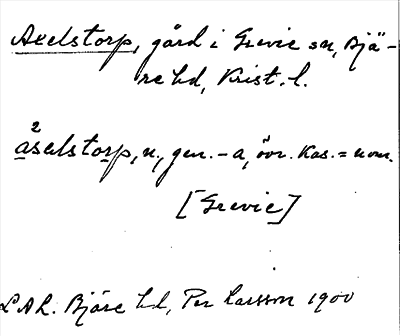 Axelstorp, gård i Grevie sn, Bjä-
re hd, Krist. l.
2
aselstorp, n., gen. -a, övr. kas. = nom.
[Grevie]
LAL. Bjäre hd, Per Larsson 1900